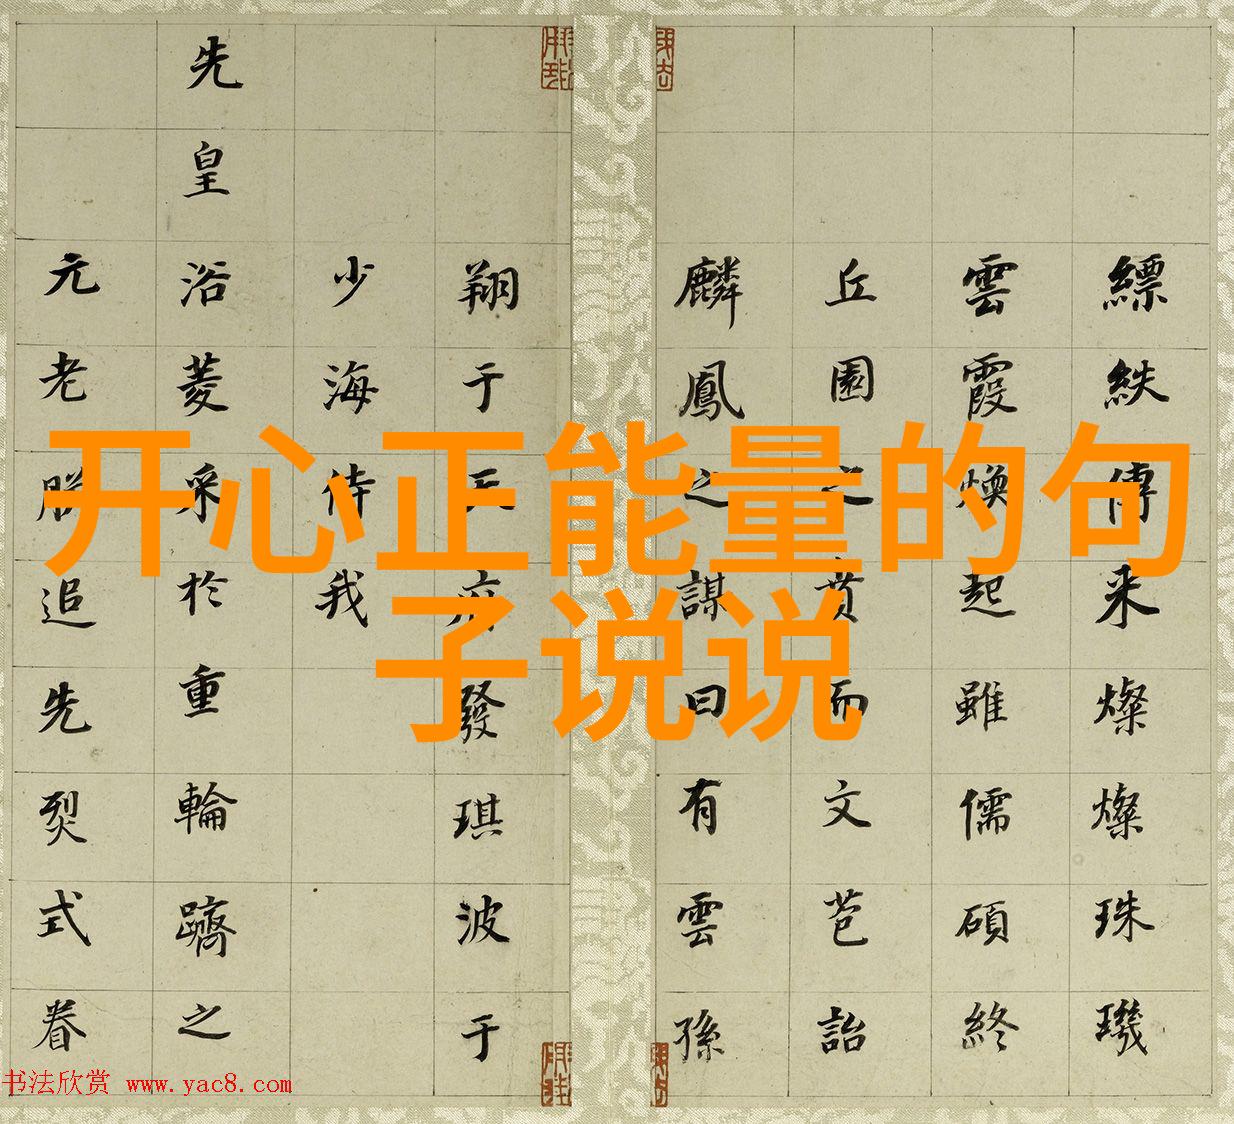 开心正能量的句
子说说
縹紩傳来燦燦珠璣
雲霞煥起雖儒碩終
丘園之賁而文芭詒
麟鳳之謀曰有雲孫
翔于天府發琪波于
少海侍我
先皇浴菱采於重輪躋之
元老朕追先烈式眷
书法欣赏 www.yac8.com